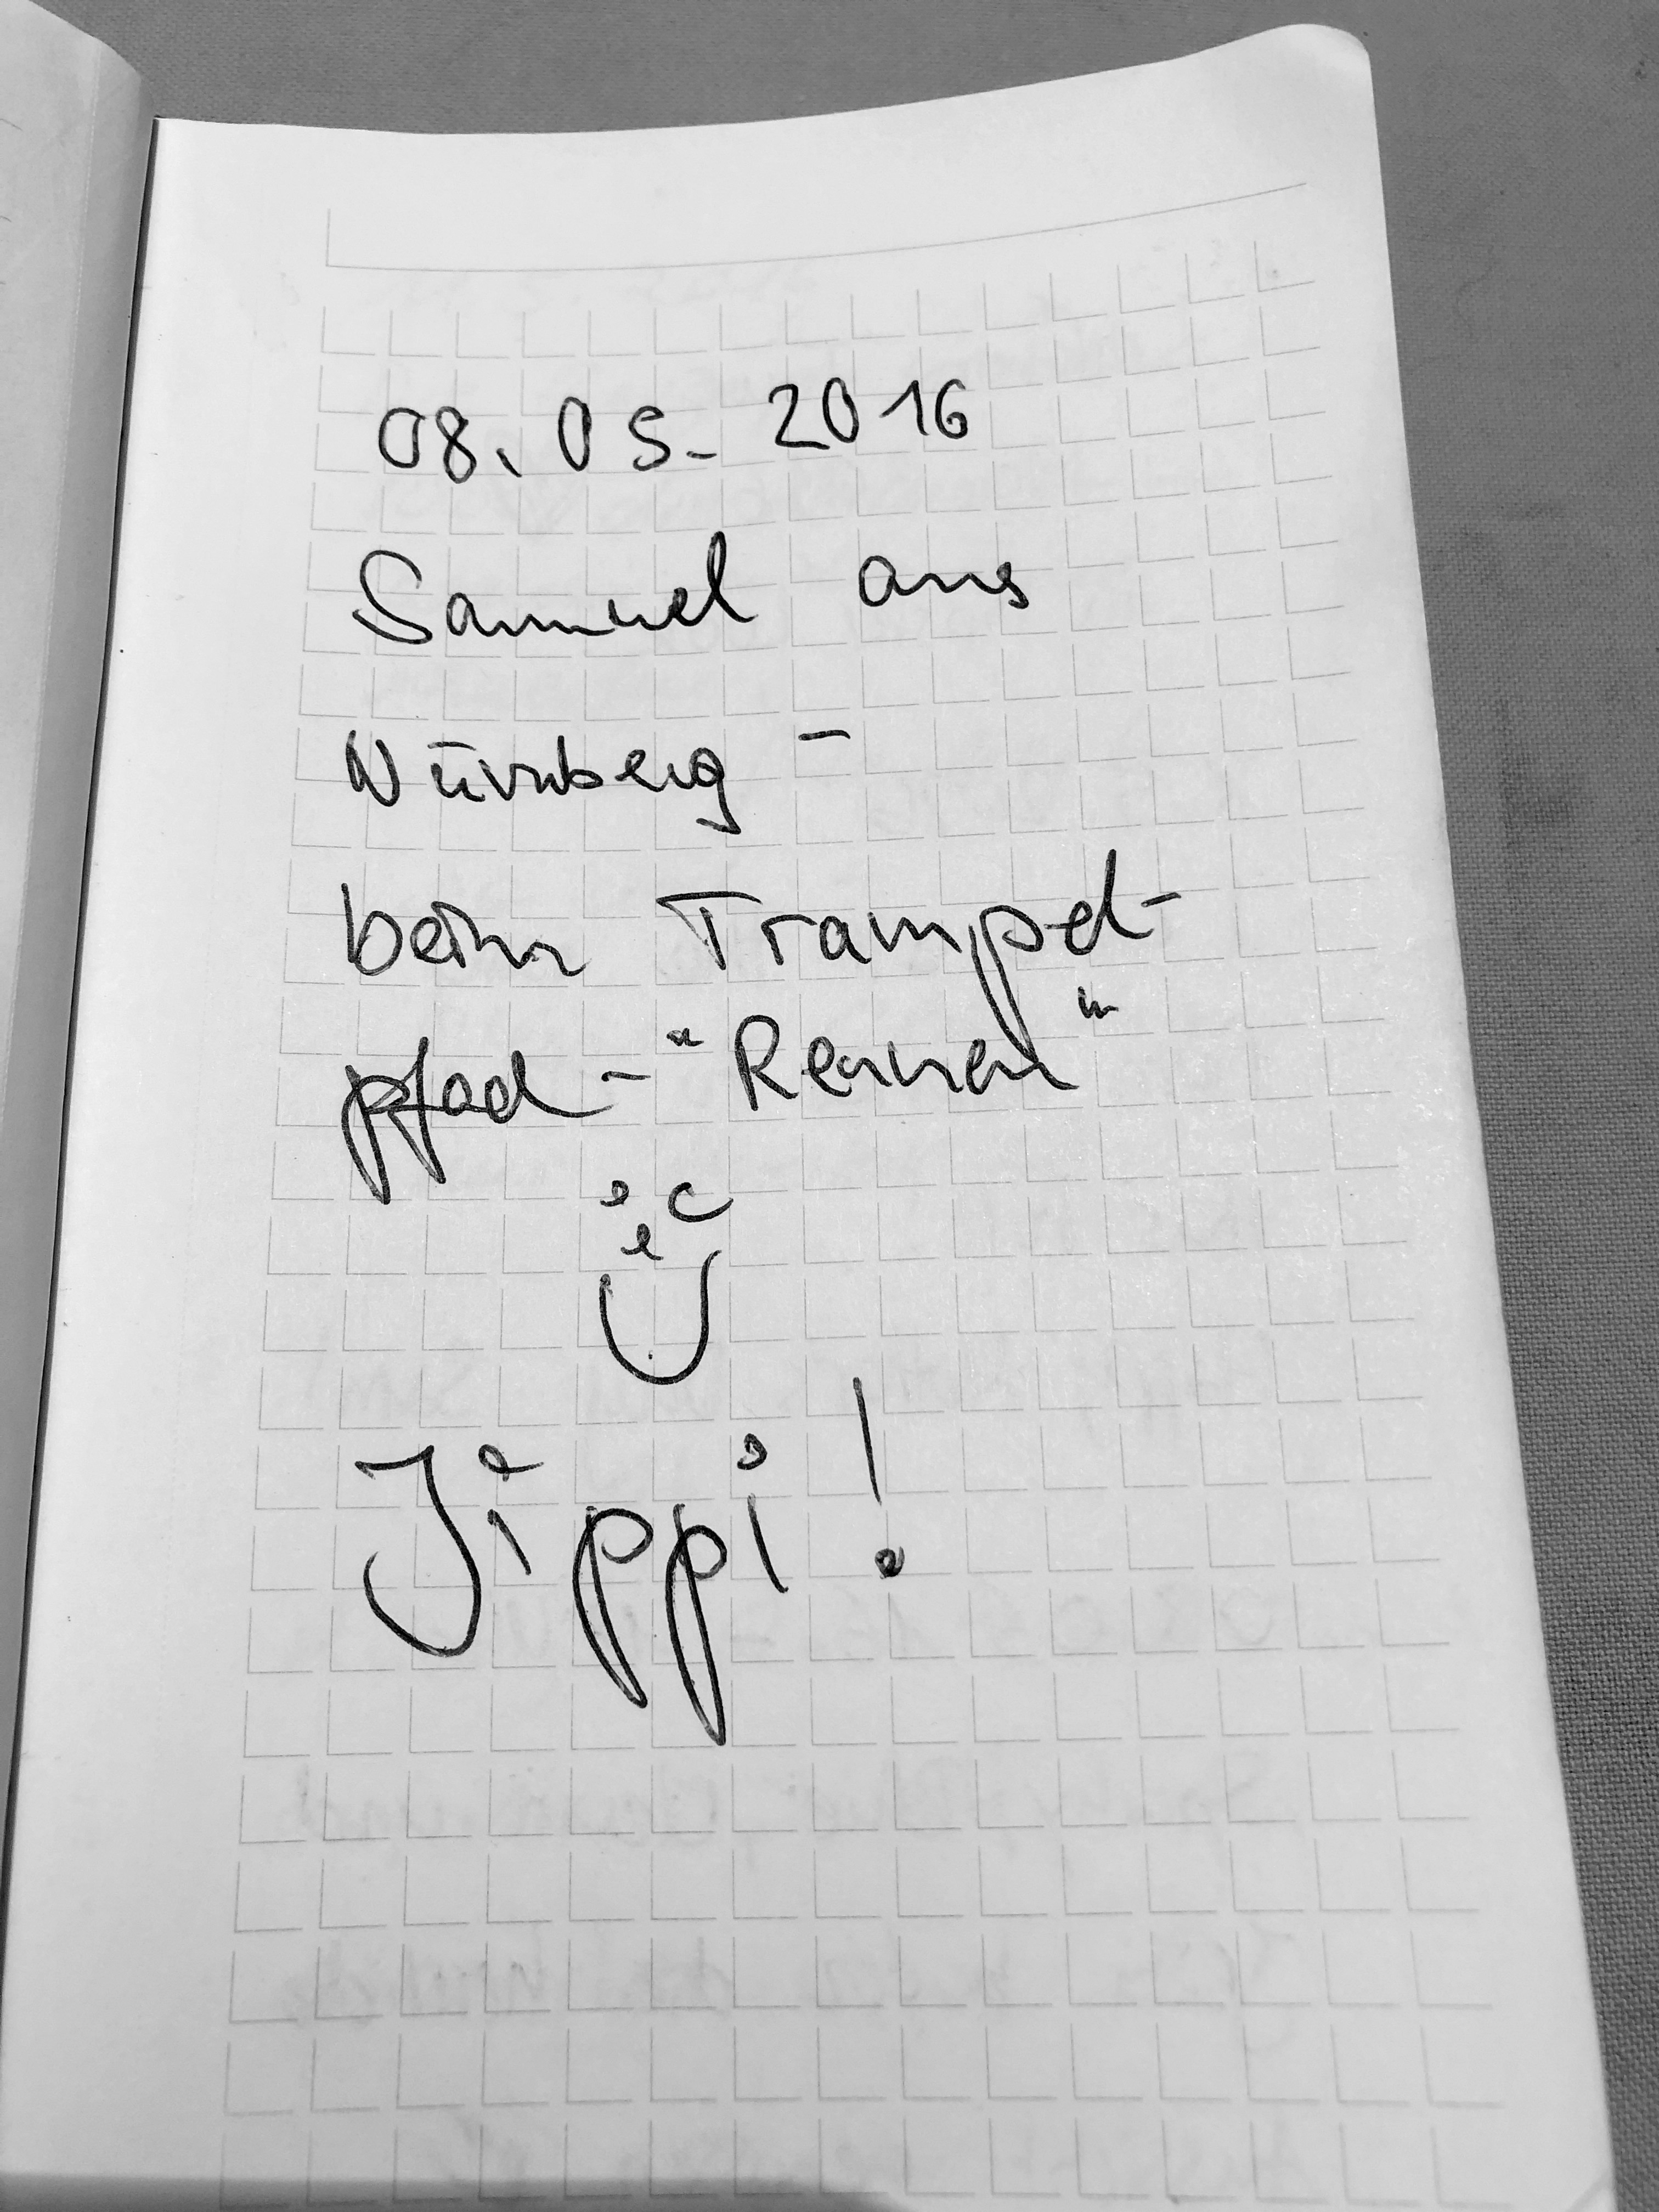 08.05.2016
Samuel aus
Nürnberg -
beim Trampel-
pfad - "Rennen"
Jippi!